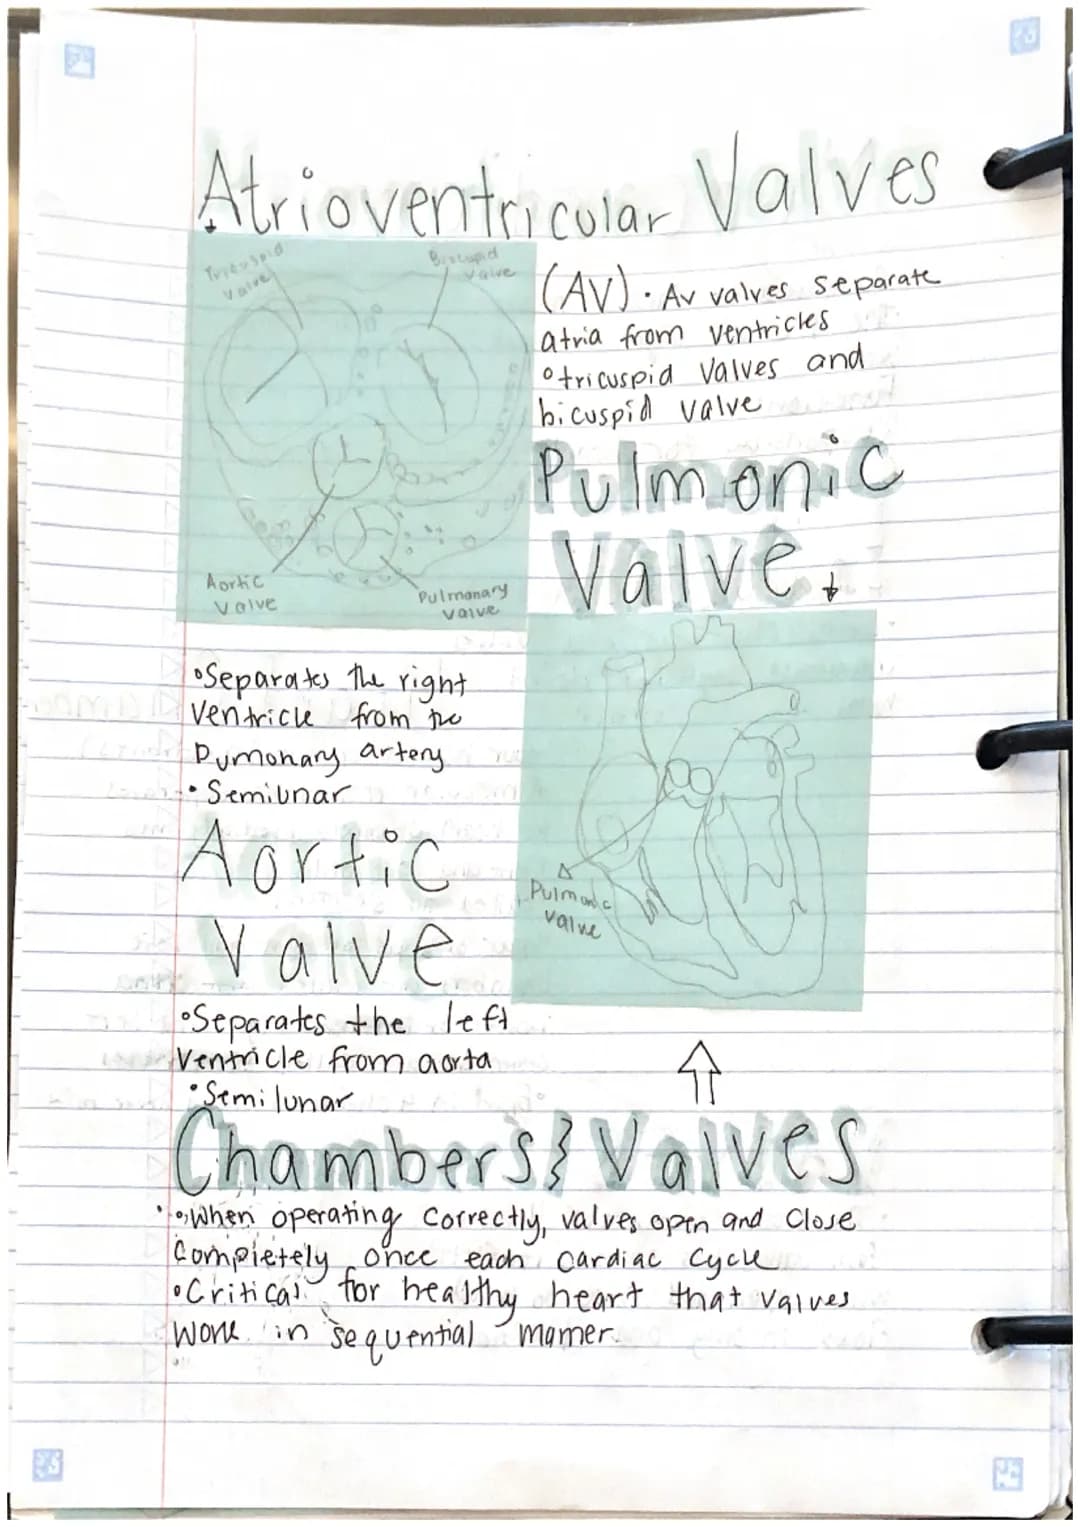 Atrioventricular Valves
Tricuspid
valve
Biscupid
valve
(AV) • AV valves separate
atria from ventricles
°tricuspid Valves and
bicuspid valve
Pulmonic
Valve
Aortic
Valve
Pulmanary
valve
•Separates the right
ventricle from the
Pumonary artery
• Semilunar
Pulmonic
valve
Aortic
Valve
•Separates the left
ventricle from aorta
•Semilunar
Chambers } Valves
•When operating correctly, valves open and close
completely once each cardiac cycle
•Critical for healthy heart that valves
work in sequential manner.